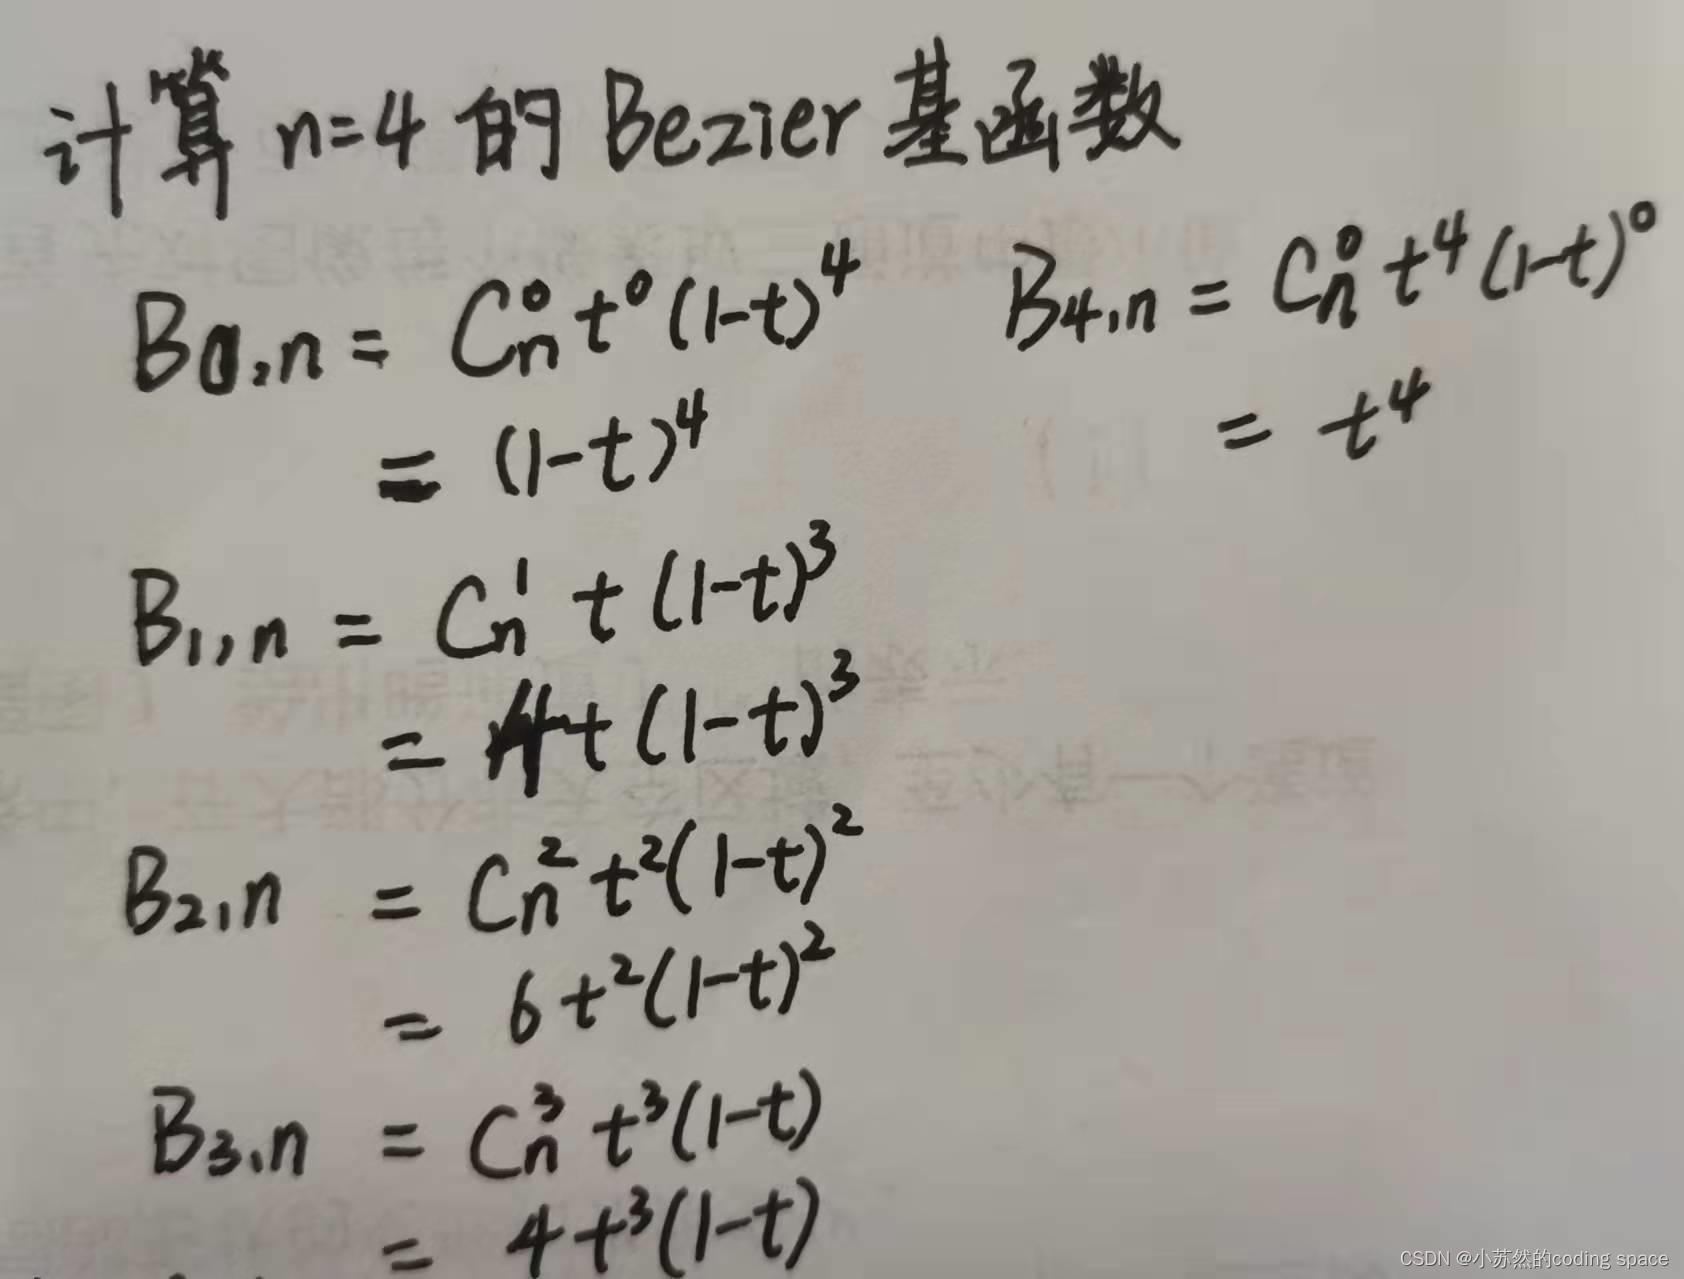 计算 n=4 的 Bezier 基函数
B0,n = Cn^0 t^0 (1-t)^4
= (1-t)^4
B1,n = Cn^1 t (1-t)^3
= 4t (1-t)^3
B2,n = Cn^2 t^2 (1-t)^2
= 6 t^2 (1-t)^2
B3,n = Cn^3 t^3 (1-t)
= 4 t^3 (1-t)
B4,n = Cn^0 t^4 (1-t)^0
= t^4
CSDN @小苏然的coding space